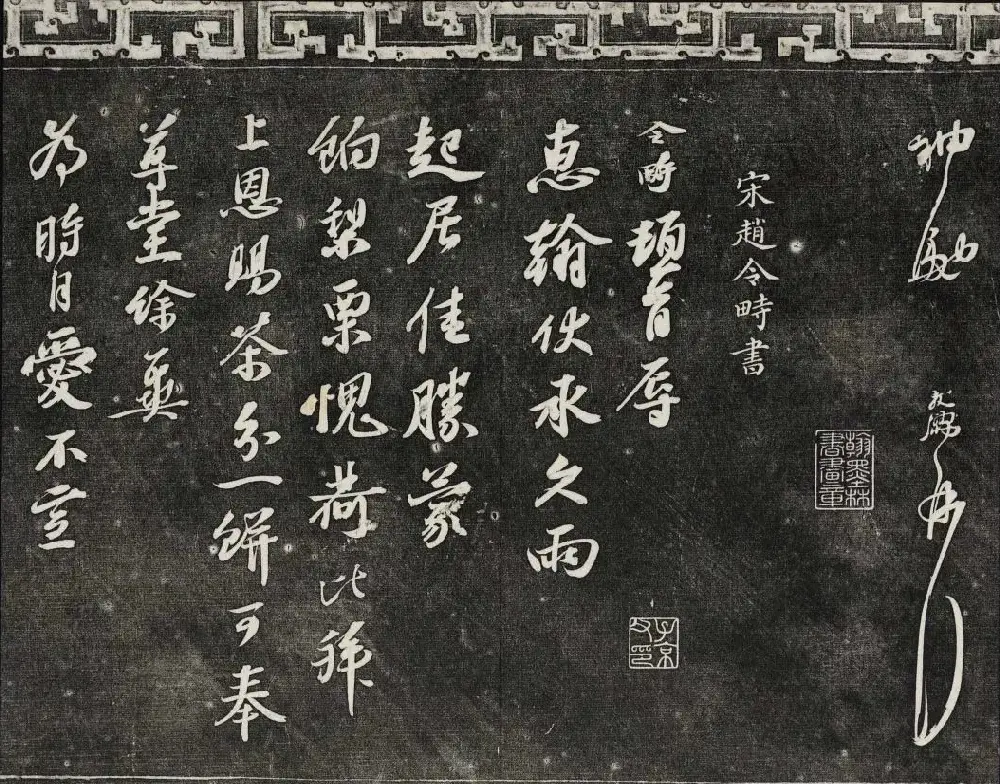 神
翰墨林書畫章
宋趙令畤書
令畤頓首辱
子京父印
惠翰伏承久雨
起居佳勝蒙
餉梨栗愧荷比拜
上恩賜茶分一餅可奉
尊堂餘冀
為時自愛不宣